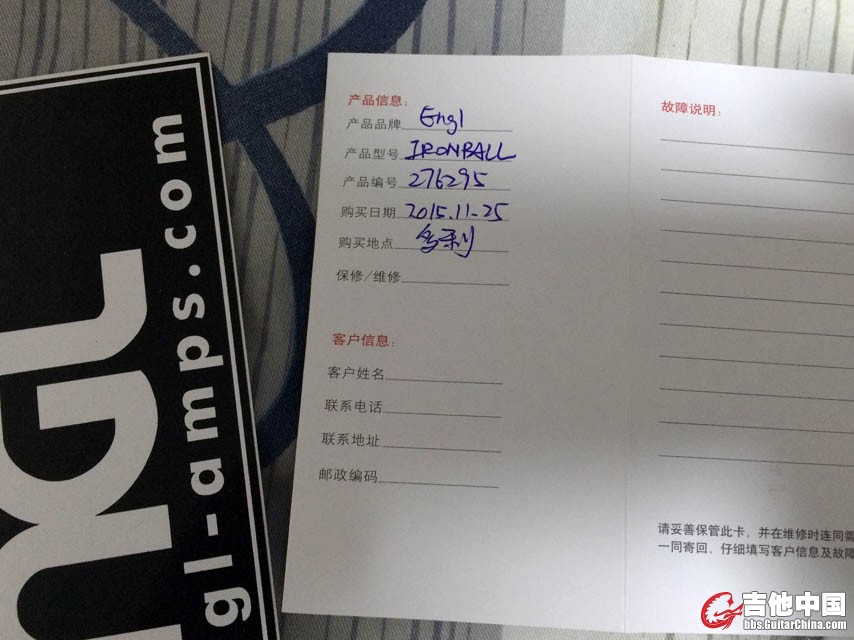 产品信息:
产品品牌 Engl
产品型号 IRONBALL
产品编号 276295
购买日期 2015.11-25
购买地点
保修/维修
客户信息:
客户姓名
联系电话
联系地址
邮政编码
故障说明:
请妥善保管此卡, 并在维修时连同需
一同寄回, 仔细填写客户信息及故障
NGL
gl-amps.com
吉他中国
bbs.GuitarChina.com